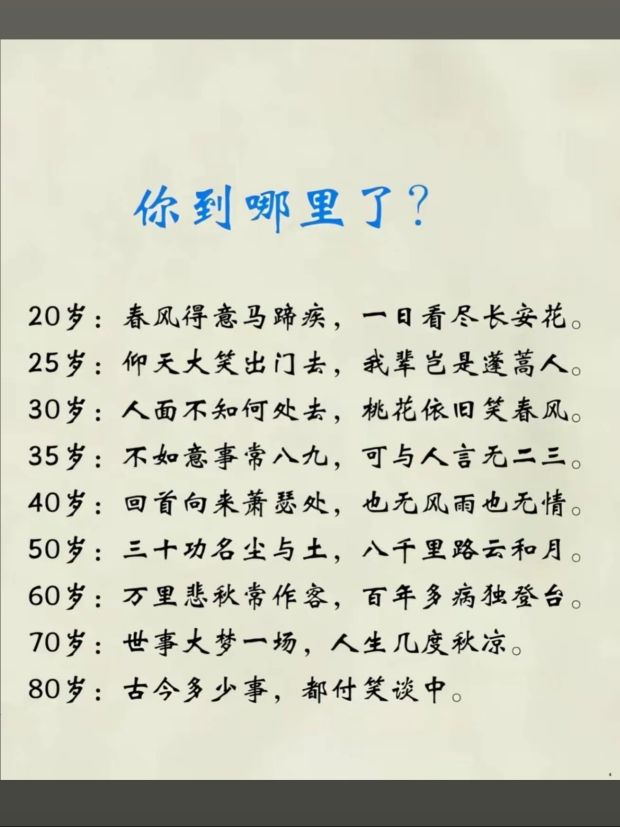 你到哪里了？
20岁：春风得意马蹄疾，一日看尽长安花。
25岁：仰天大笑出门去，我辈岂是蓬蒿人。
30岁：人面不知何处去，桃花依旧笑春风。
35岁：不如意事常八九，可与人言无二三。
40岁：回首向来萧瑟处，也无风雨也无情。
50岁：三十功名尘与土，八千里路云和月。
60岁：万里悲秋常作客，百年多病独登台。
70岁：世事大梦一场，人生几度秋凉。
80岁：古今多少事，都付笑谈中。